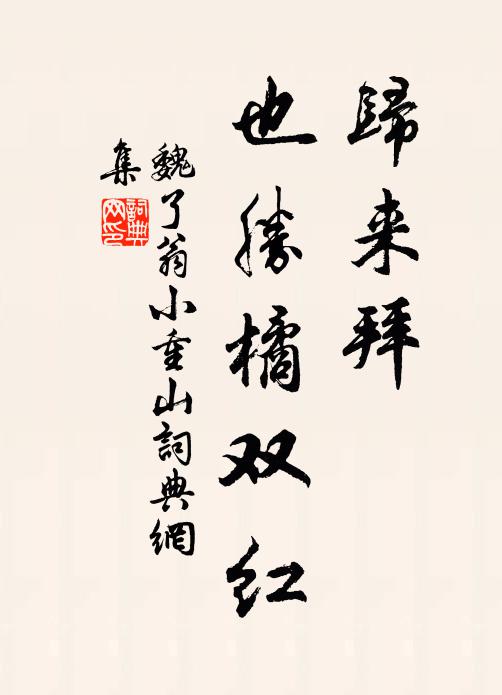 歸来拜
也勝橘双红
魏了翁小重山詞典網
集
詞典
网印